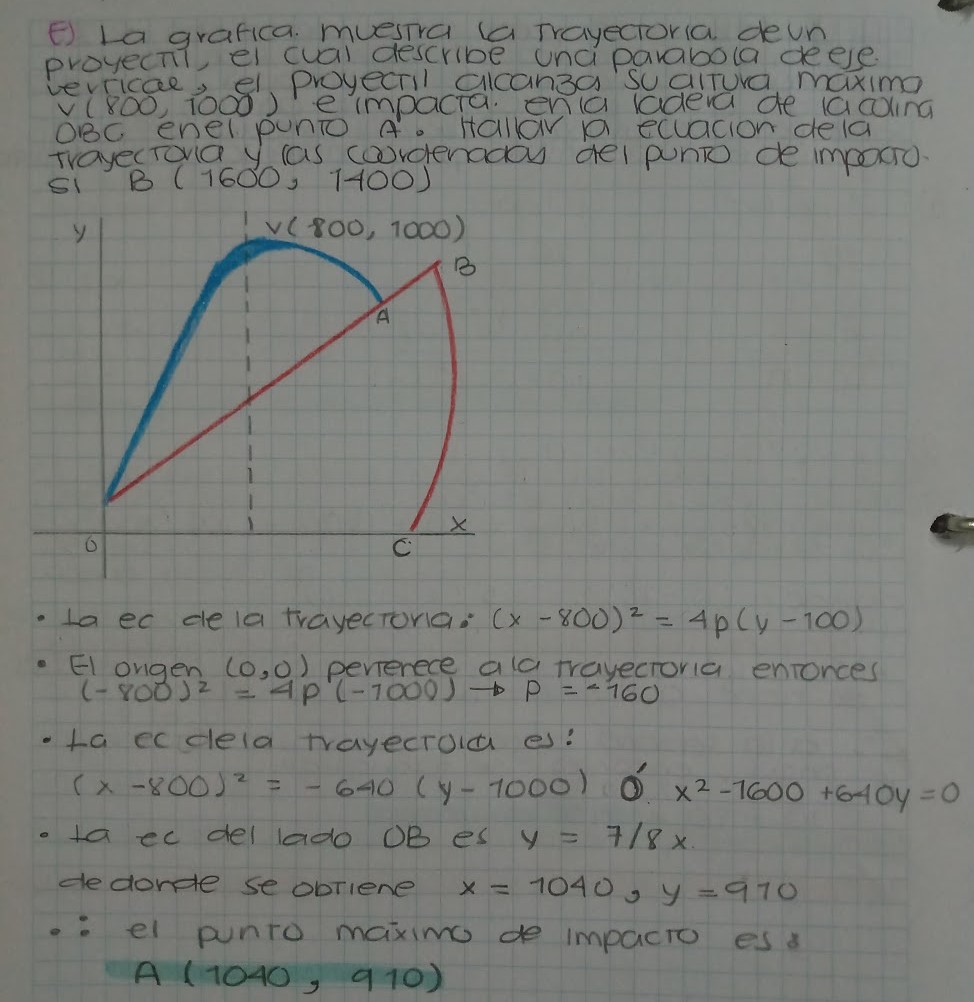 E) La grafica. muestra la trayectoria de un
proyectil, el cual describe una parabola de eje
vertical, el proyectil alcanza su altura máximo
V(800, 1000) e impacta. en la ladera de la colina
OBC en el punto A. Hallar la ecuacion de la
trayectoria y las coordenadas del punto de impacto.
si B (1600, 1400)
y
V(800, 1000)
B
A
x
0
C
• La ec de la trayectoria: (x - 800)² = 4p(y - 100)
• El origen (0,0) pertenece a la trayectoria entonces
(-800)² = 4p (-1000) → p = -160
• La ec de la trayectoria es:
(x - 800)² = - 640 (y - 1000) Ó x² - 1600 + 640y = 0
• La ec del lado OB es y = 7/8 x.
de donde se obtiene x = 1040, y = 910
∴ el punto máximo de impacto es:
A (1040, 910)